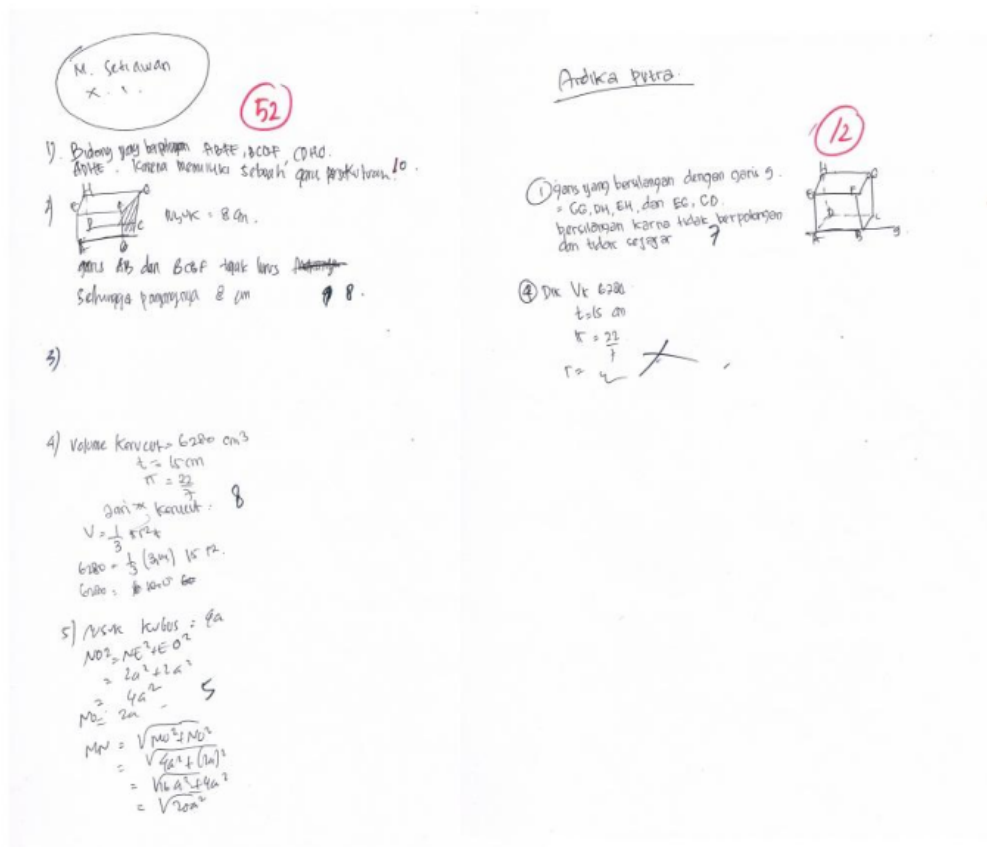 M. Setiawan
X. 1.
52
1). Bidang yang berpotongan ABFE, BCGF, CDHG.
ADHE. Karena memiliki sebuah garis 10
2)
H
E
D
C
A
B
Rusuk = 8 cm.
garis AB dan BCGF tegak lurus
Sehingga panjangnya 8 cm 8.
3)
4) Volume Kerucut = 6280 cm3
t = 15 cm
π = 22
7
Jari kerucut : 8
V = 1/3 πr²t
6280 = 1/3 (3,14) 15 r2.
6280 =
5) Rusuk kubus =
NO2 = NE² + EO²
= 2a² + 2a²
= 4a²
NO = 2a
5
MN = √MO² + NO²
= √4a² + (2a)²
= √16a² + 4a²
= √20a²
Ardika Putra.
12
① garis yang bersilangan dengan garis g.
= CG, DH, EH, dan EG, CD.
bersilangan karna tidak berpotongan
dan tidak sejajar 7
H
E
F
D
A
B
g
④ Dik Vk 6280
t = 15 cm
π = 22
7
r =